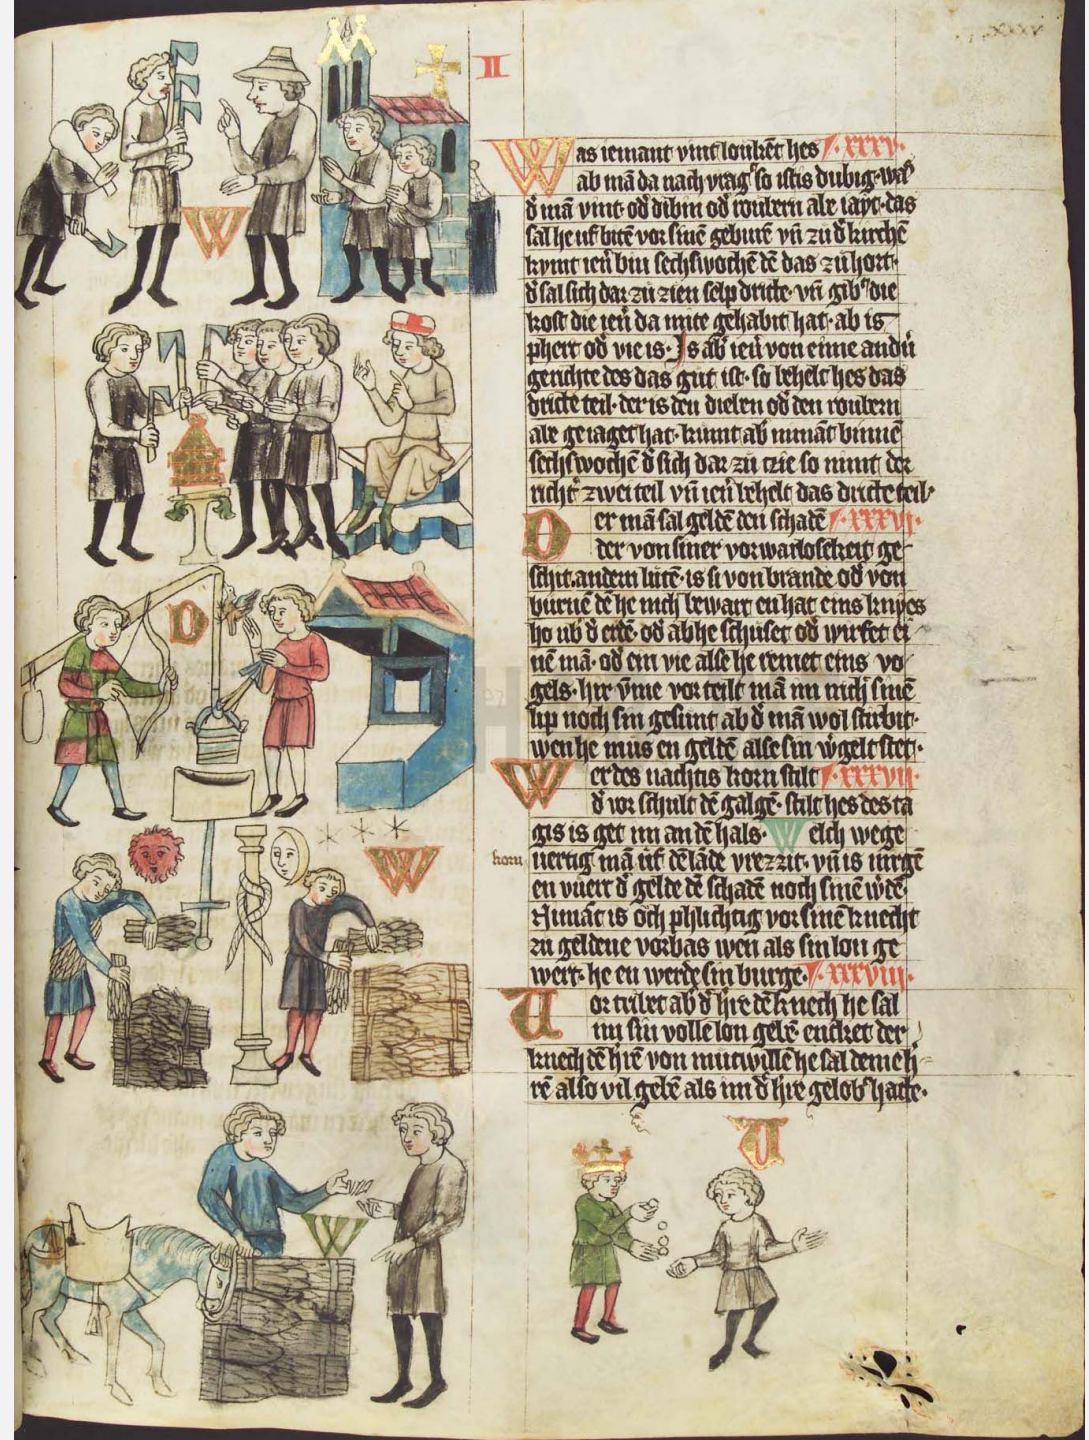 II
Was iemant vint loukēt hes ·xxxv·
ab mā da nach vrag so istis dubig· was
d' mā vint· od' dibin od' roubern ale iayt· das
sal he uf bitē vor sinē geburē vn̄ zu d' kirchē
kymt ien' bin sechswochē dē das zu hort·
d' sal sich dar zu zien selp dritte· vn̄ gib' die
kost die ien' da mite gehabit hat· ab is
phert od' vie is· Is ab' ien' von eime andn̄
gerichte des das gut ist· so behelt hes das
dritte teil· der is den dieben od' den roubern
ale geiaget hat· kumt ab' nimāt binnē
sechswochē d' sich dar zu czie so nimt der
richt' zwei teil vn̄ ien' behelt das dritte teil·
Der mā sal geldē den schadē ·xxxvi·
der von siner vorwarlosekeit ge
schit· andern lutē· is si von brande od' von
burnē dē he nich bewart en hat eins knyes
ho ub' d' erdē· od' ab he schuset od' wirfet ei
nē mā· od' ein vie alse he remet eins vo
gels· hir v̄me vorteilt mā im nich sinē
lip noch sin gesunt ab d' mā wol stirbit·
wen he mus en geldē alse sin w'gelt stet·
Wer des nachtis korn stilt ·xxxvii·
d' vor schult dē galgē· stilt hes des ta
gis is get im an dē hals· Welch wege
korn
uertig mā uf dē lāde vrezzit· vn̄ is nirgē
en vuert d' gelde dē schadē noch sinē w'dē
Nimāt is och phlichtig vor sinē knecht
zu geldene vorbas wen als sin lon ge
wert· he en werde sin burge· ·xxxviii·
Vortribt ab' d' h're dē knech he sal
im sin volle lon gebē· entket der
knech dē h'rē von mutwillē he sal deme h'
rē also vil gebē als im d' h're gelob' hatte·
W
D
W
W
V